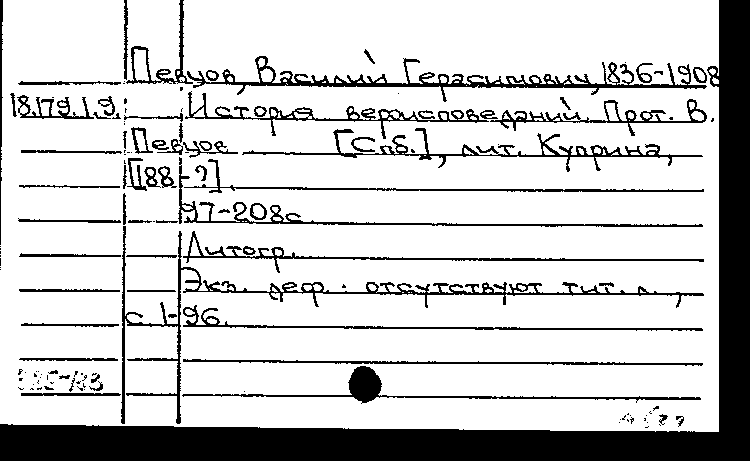 Певцов, Василий Герасимович, 1836-1908
18.179.1.9. История вероисповеданий. Прот. В.
Певцов [Спб.], лит. Куприна,
[188-?].
97-208с.
Литогр.
Экз. деф. : отсутствуют тит. л.,
с. 1-96.